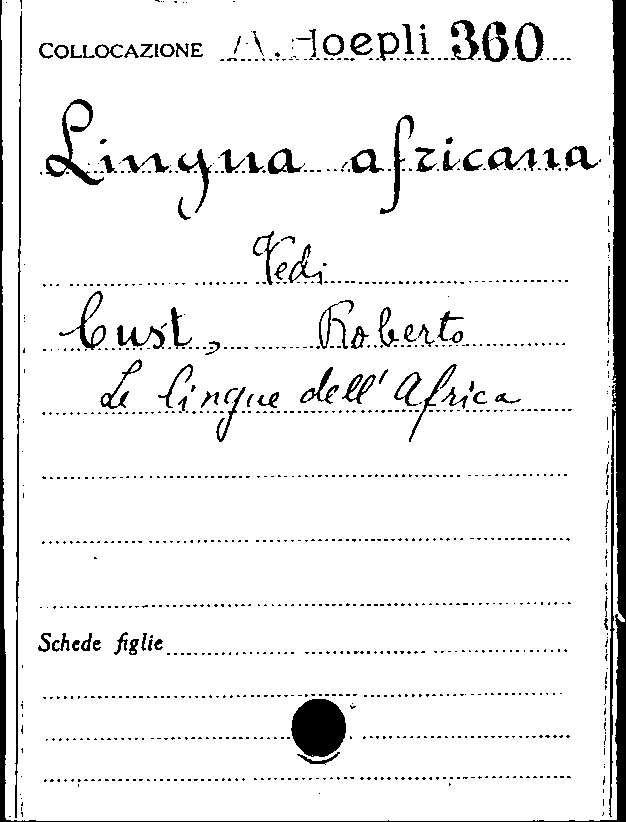 COLLOCAZIONE A. Hoepli 360
Lingua africana
Vedi
Cust, Roberto
Le lingue dell' Africa
Schede figlie